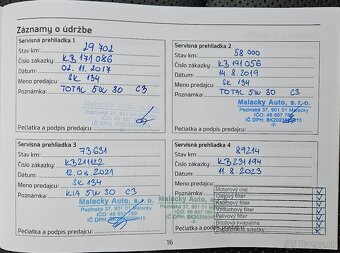 Záznamy o údržbe
Servisná prehliadka 1
Stav km: 29 702
Číslo zákazky: KB 171086
Dátum: 02. 11. 2017
Meno predajcu: SK 134
Poznámka: TOTAL 5W 30 C3
Malacky Auto, s.r.o.
Pezinská 37, 901 01 Malacky
Pečiatka a podpis predajcu:
Servisná prehliadka 2
Stav km: 58 000
Číslo zákazky: KB 191056
Dátum: 14. 8. 2019
Meno predajcu: SK 134
Poznámka: TOTAL 5W 30 C3
Malacky Auto, s.r.o.
Pezinská 37, 901 01 Malacky
Pečiatka a podpis predajcu:
Servisná prehliadka 3
Stav km: 73631
Číslo zákazky: KB211122
Dátum: 12. 04. 2021
Meno predajcu: SK 134
Poznámka: KIA 5W 30 C3
Malacky Auto, s.r.o.
Pezinská 37, 901 01 Malacky
Pečiatka a podpis predajcu:
Servisná prehliadka 4
Stav km: 89214
Číslo zákazky: KB 231194
Dátum: 11. 8. 2023
Meno predajcu: SK 134
Poznámka:
Malacky Auto, s.r.o.
Pezinská 37, 901 01 Malacky
Motorový olej
Olejový filter
Kabínový filter
Vzduchový filter
Palivový filter
Brzdová kvapalina
sviečky
Pečiatka a podpis predajcu:
16